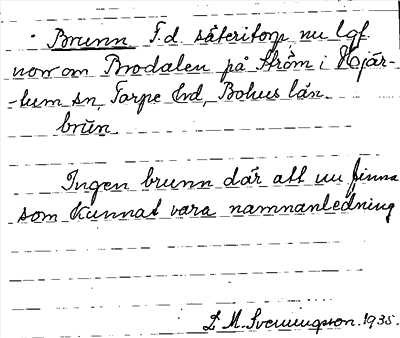 Brunn F.d. säteritorp nu lgf
norr om Brodalen på Ström i Hjär-
-tum sn, Torpe hd, Bohus län.
brūn
Ingen brunn där att nu finna
som kunnat vara namnanledning
D. M. Svenungsson. 1935.